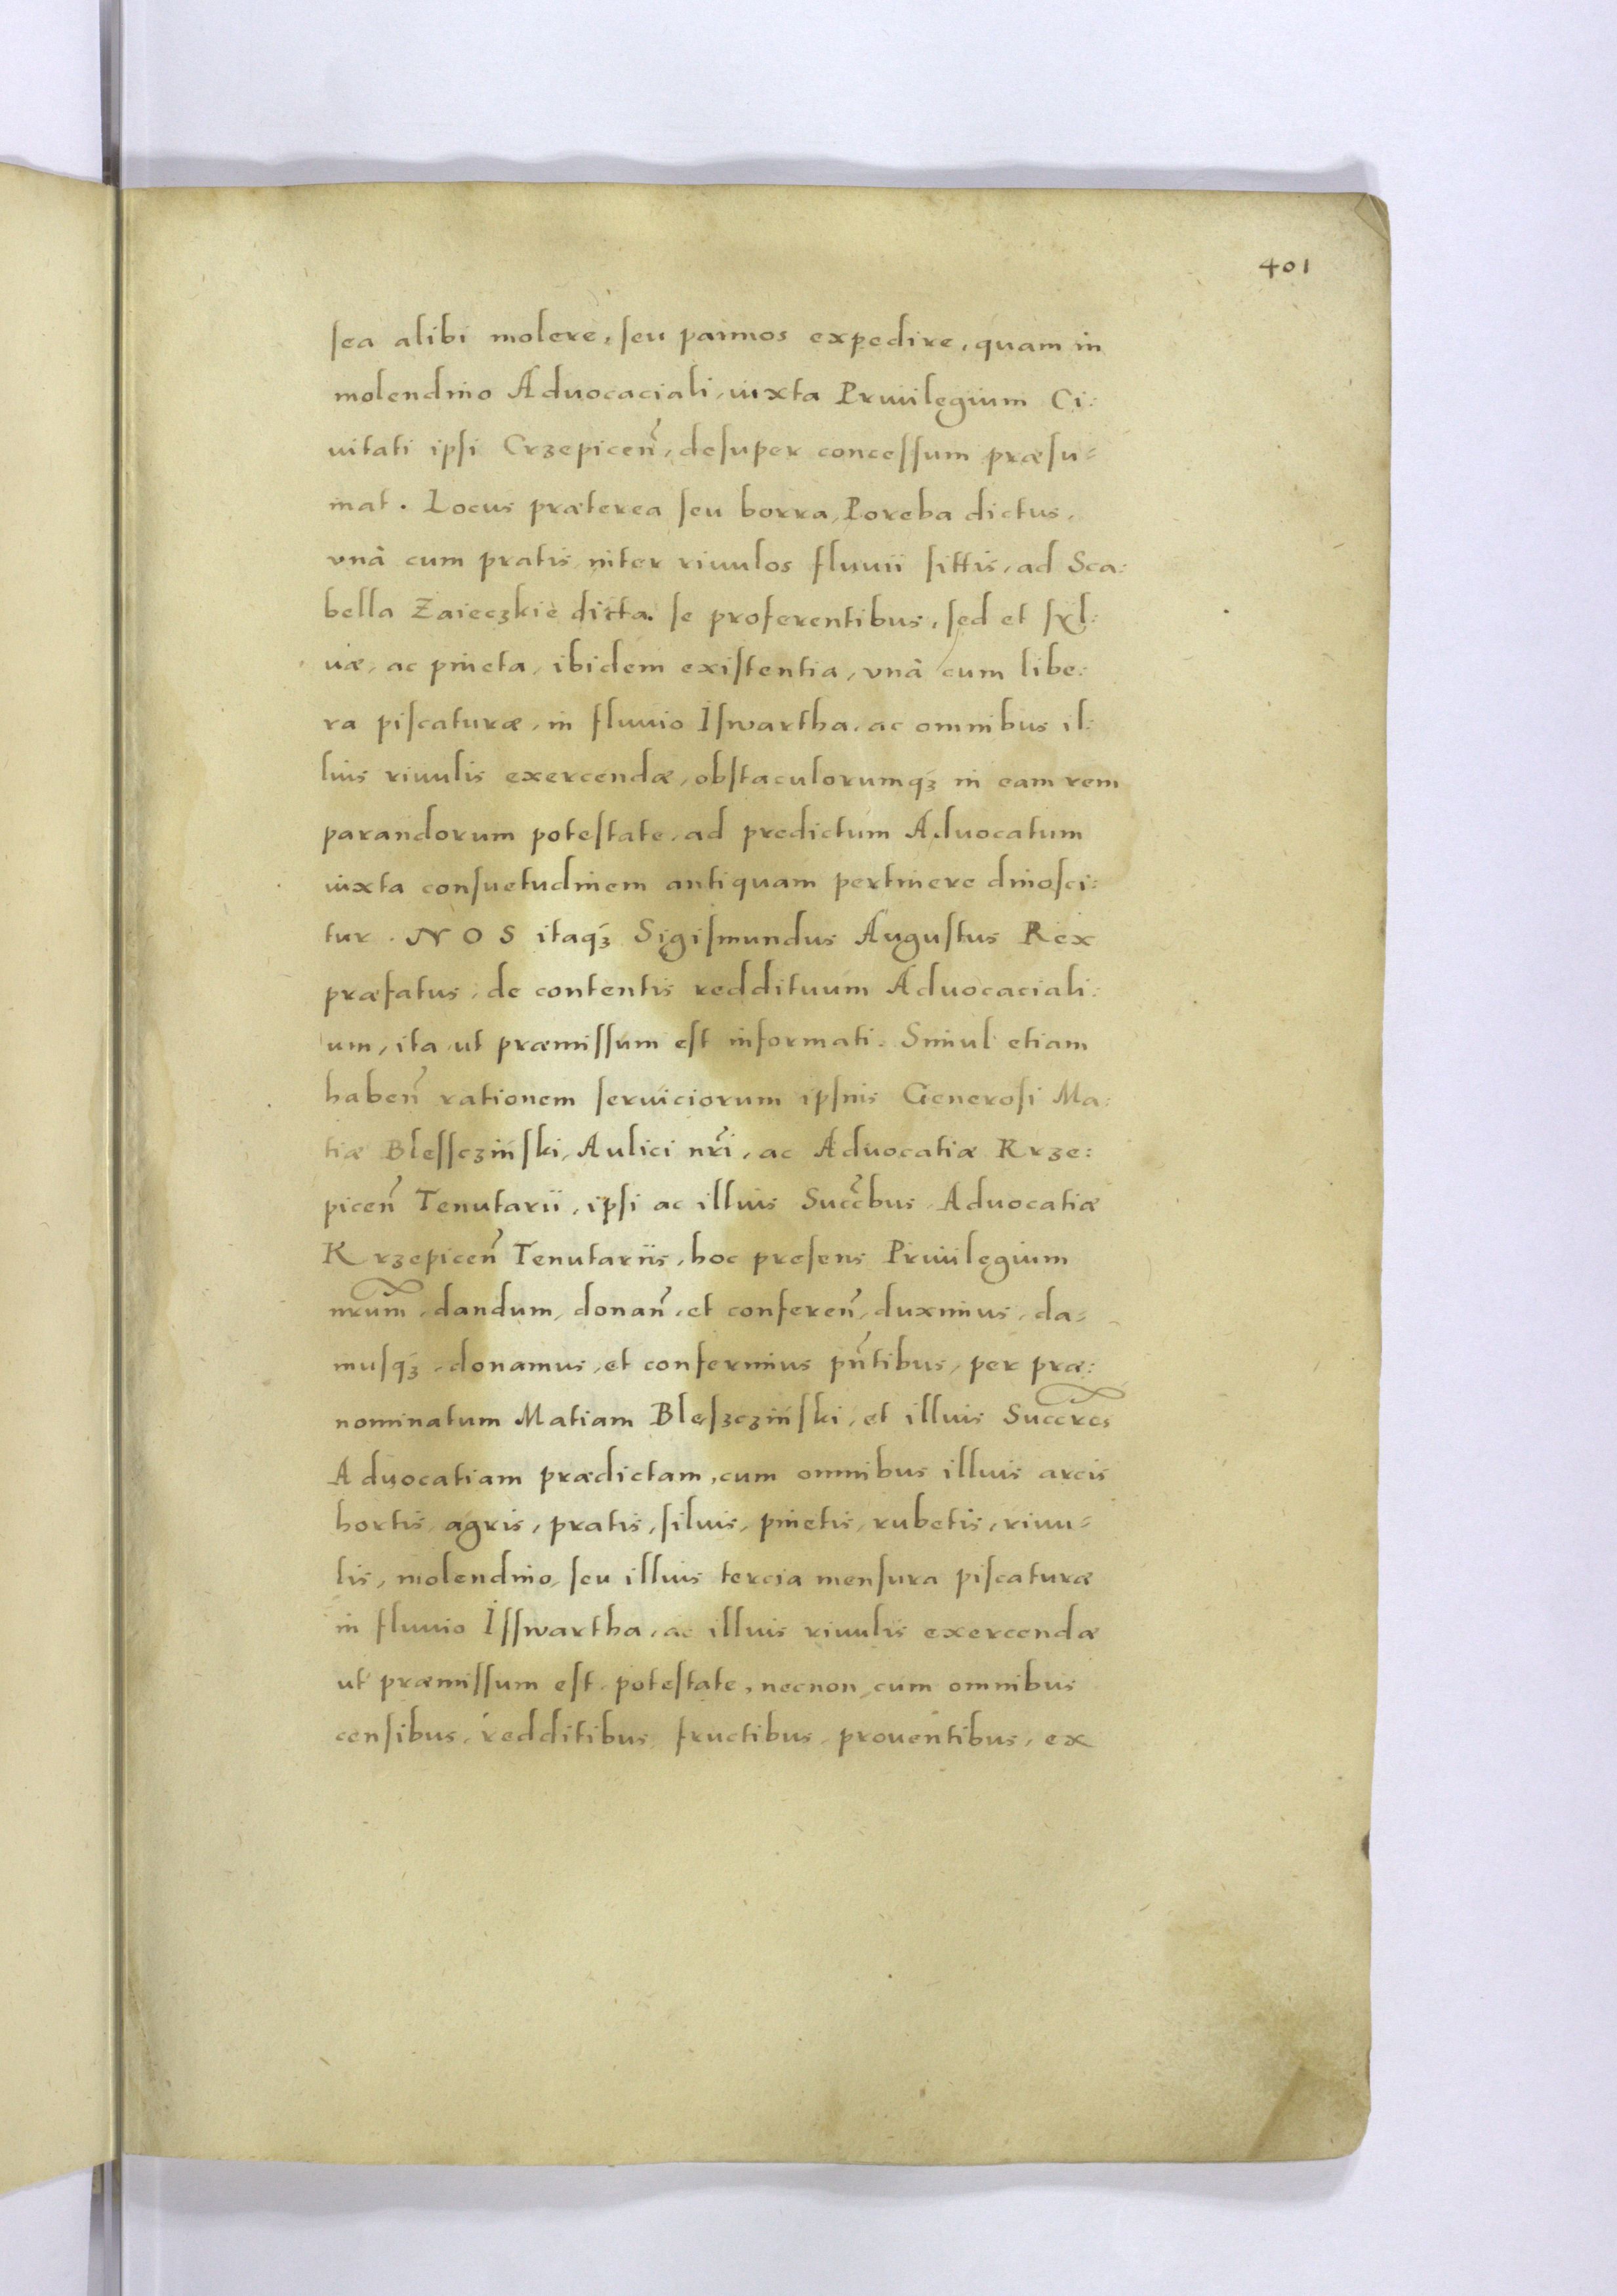 401
ſea alibi molere, ſeu pannos expedire, quam in
molendino Aduocaciali, iuxta Priuilegium Ci:
uitati ipſi Crzepiceñ, deſuper conceſſum præſu-
mat. Locus præterea ſeu borra, Poreba dictus,
vnâ cum pratis inter riuulos fluuii ſittis, ad Sca:
bella Zaieczkie dicta. ſe proferentibus, ſed et ſyl:
uæ, ac pineta, ibidem exiſtentia, vnâ cum libe:
ra piſcaturæ, in fluuio Iſwartha, ac omnibus il:
lius riuulis exercendæ, obſtaculorumqꝫ in eam rem
parandorum poteſtate, ad predictum Aduocatum
iuxta conſuetudinem antiquam pertinere dinoſci:
tur. NOS itaqꝫ Sigiſmundus Auguſtus Rex
præfatus, de contentis reddituum Aduocaciali:
um, ita ut præmiſſum eſt informati. Simul etiam
habeñ rationem ſeruiciorum ipſius Generoſi Ma:
tiæ Bleſſczińſki, Aulici nr̃i, ac Aduocatiæ Krze:
piceñ Tenutarii, ipſi ac illius Succ̃bus Aduocatiæ
Krzepiceñ Tenutariis, hoc preſens Priuilegium
nr̃um, dandum, donañ, et confereñ, duximus, da-
muſqꝫ, donamus, et conferimus pñtibus, per præ:
nominatum Matiam Bleſzczińſki, et illius Succr̃es
Aduocatiam prædictam, cum omnibus illius arcis
hortis, agris, pratis, ſiluis, pinetis, rubetis, riuu-
lis, molendino, ſeu illius tercia menſura piſcaturæ
in fluuio Iſſwartha, ac illius riuulis exercendæ
ut præmiſſum eſt, poteſtate, necnon cum omnibus
cenſibus, redditibus, fructibus, prouentibus, ex